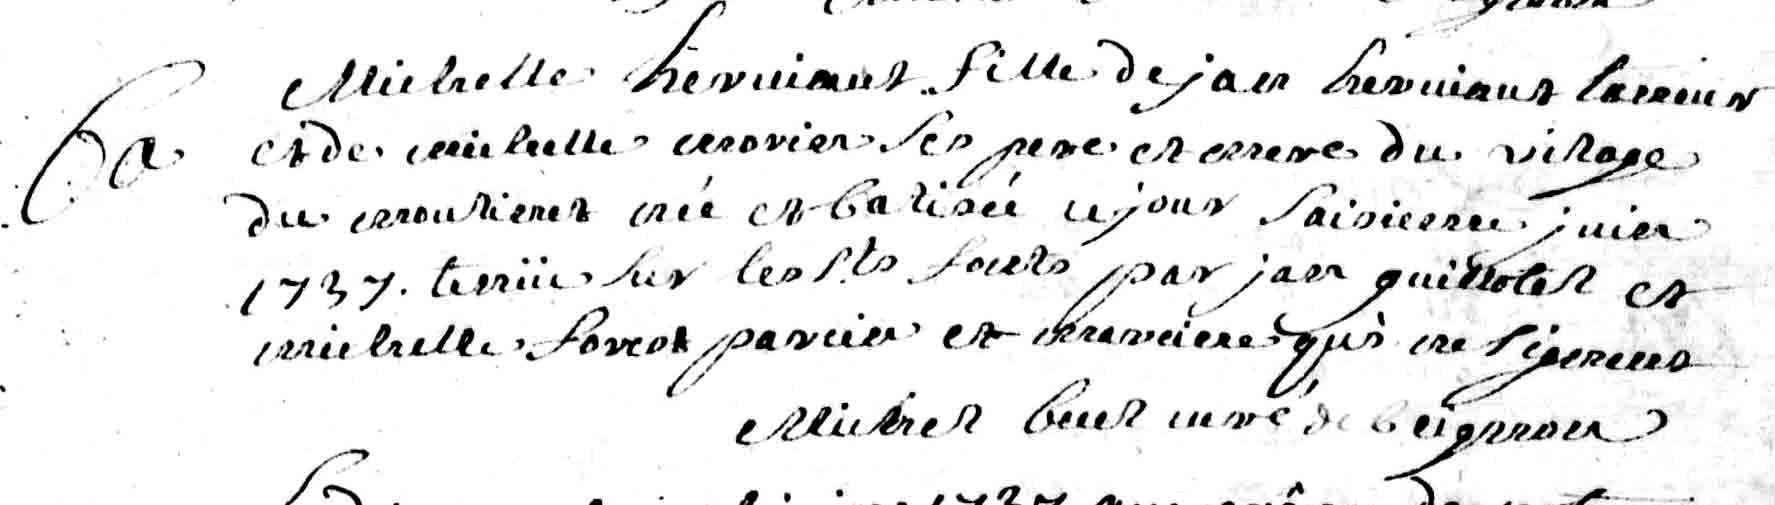 Michelle herviaut fille de jan herviaut
Ba et de michelle morier ses pere et mere du vilage
du moutienet née et batisée ce jour saisieme juin
1737. tenüe sur les Sts fonts par jan guillotel et
michelle foret parein et mareine qui ne signent
Michel curé de beignon
1737